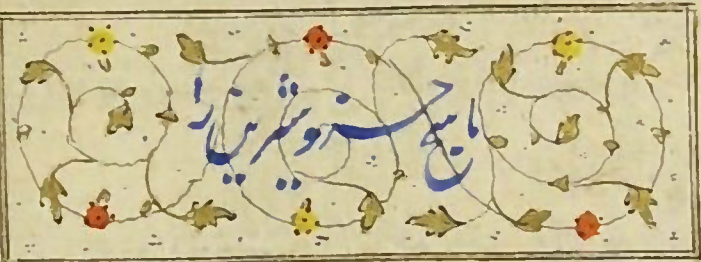 پاسخ خسرو شیرین را